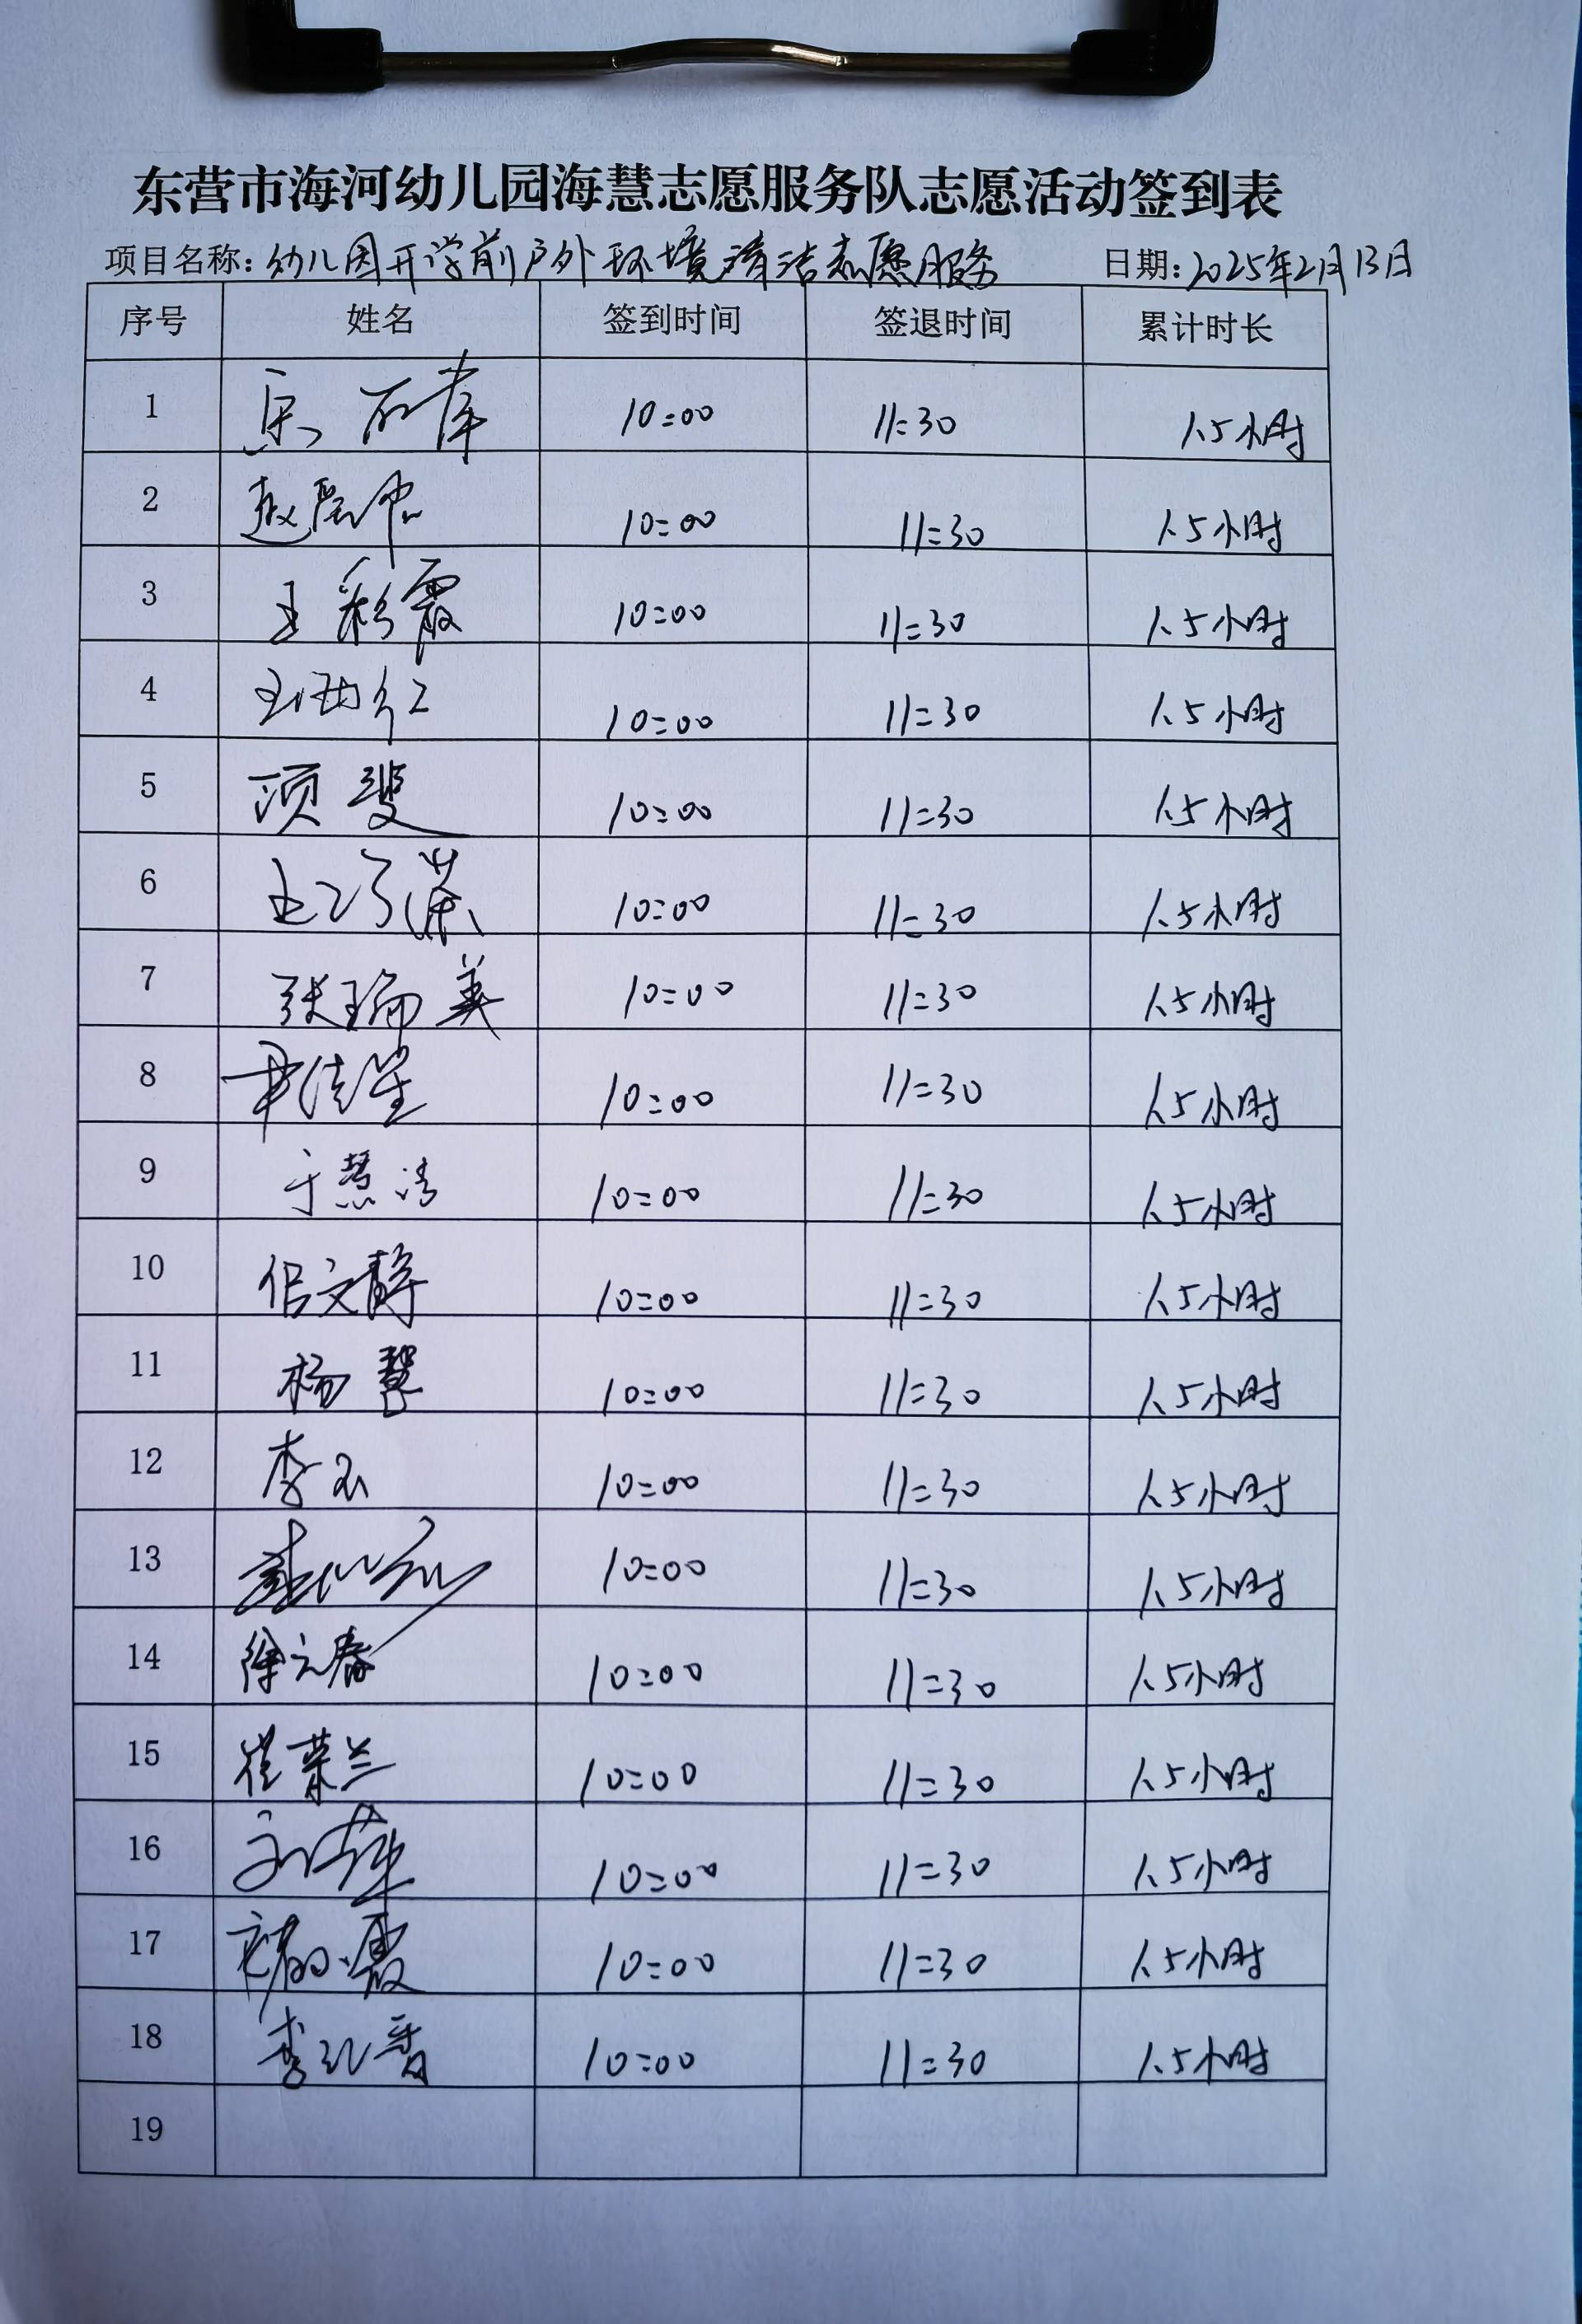 东营市海河幼儿园海慧志愿服务队志愿活动签到表
项目名称:幼儿园开学前户外环境清洁志愿服务 日期:2025年2月13日
序号 姓名 签到时间 签退时间 累计时长
1 10:00 11:30 1.5小时
2 10:00 11:30 1.5小时
3 王彩霞 10:00 11:30 1.5小时
4 10:00 11:30 1.5小时
5 项斐 10:00 11:30 1.5小时
6 10:00 11:30 1.5小时
7 张瑞美 10:00 11:30 1.5小时
8 10:00 11:30 1.5小时
9 于慧清 10:00 11:30 1.5小时
10 侣文静 10:00 11:30 1.5小时
11 杨慧 10:00 11:30 1.5小时
12 李玉 10:00 11:30 1.5小时
13 10:00 11:30 1.5小时
14 徐元春 10:00 11:30 1.5小时
15 崔荣兰 10:00 11:30 1.5小时
16 10:00 11:30 1.5小时
17 10:00 11:30 1.5小时
18 李红香 10:00 11:30 1.5小时
19